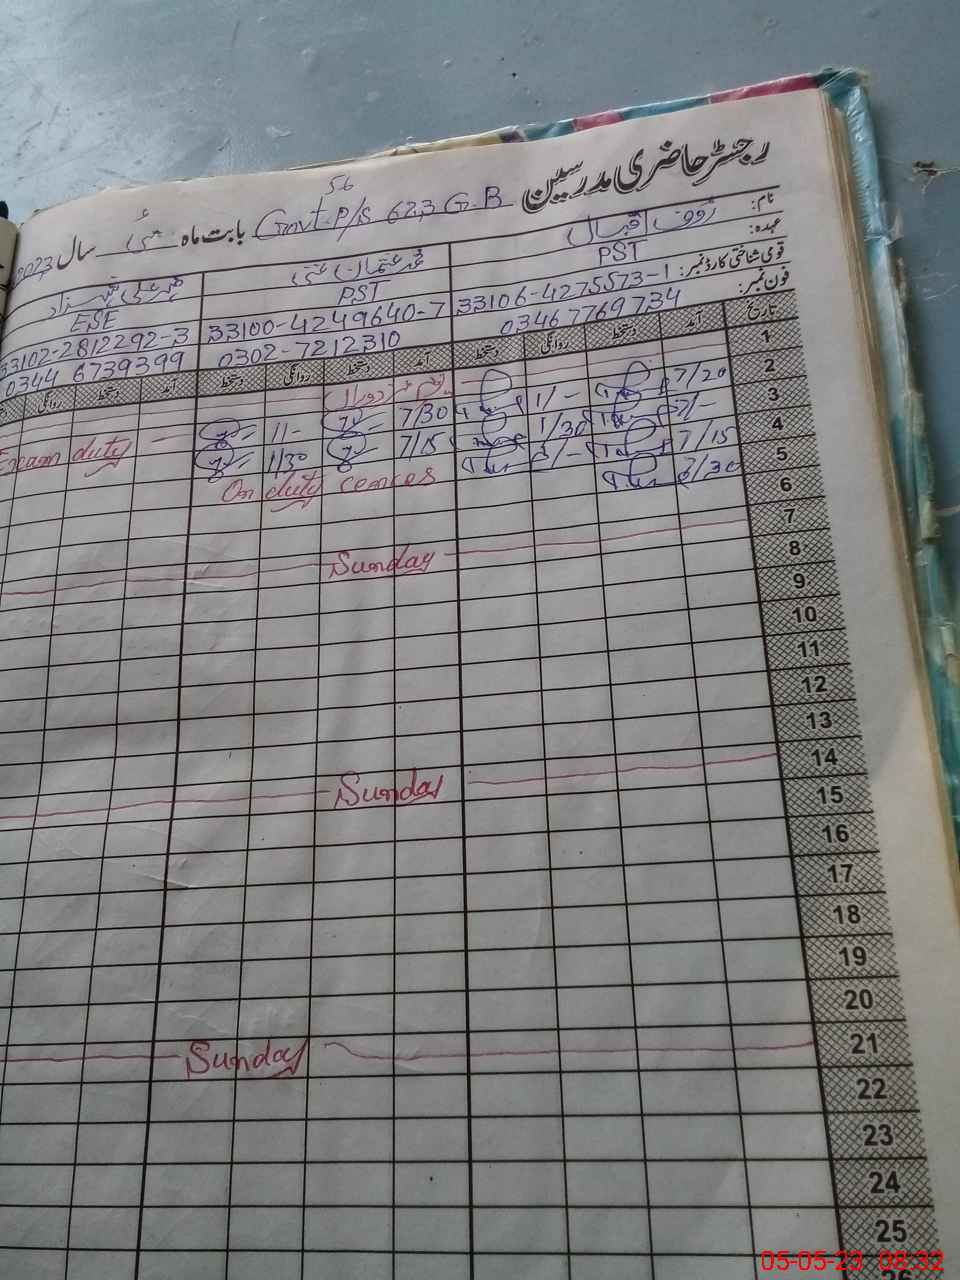 رجسٹر حاضری مدرسین
56
Govt. P/S 623 G.B بابت ماہ مئی سال 2023
نام: رؤف اقبال محمد عثمان غنی
عہدہ: PST PST ESE
قومی شناختی کارڈ نمبر: 33106-4275573-1 33100-4249640-7 33102-2812292-3
فون نمبر: 03467769734 0302-7212310 0344 6739399
تاریخ آمد دستخط روانگی دستخط آمد دستخط روانگی دستخط آمد دستخط روانگی
1
2 7/20 1/- 7/30 11- Exam duty
3 7/- 1/30 7/15 1/30
4 7/15 On duty
5
6
7 Sunday
8
9
10
11
12
13
14 Sunday
15
16
17
18
19
20
21 Sunday
22
23
24
25
26
05-05-23 08:32